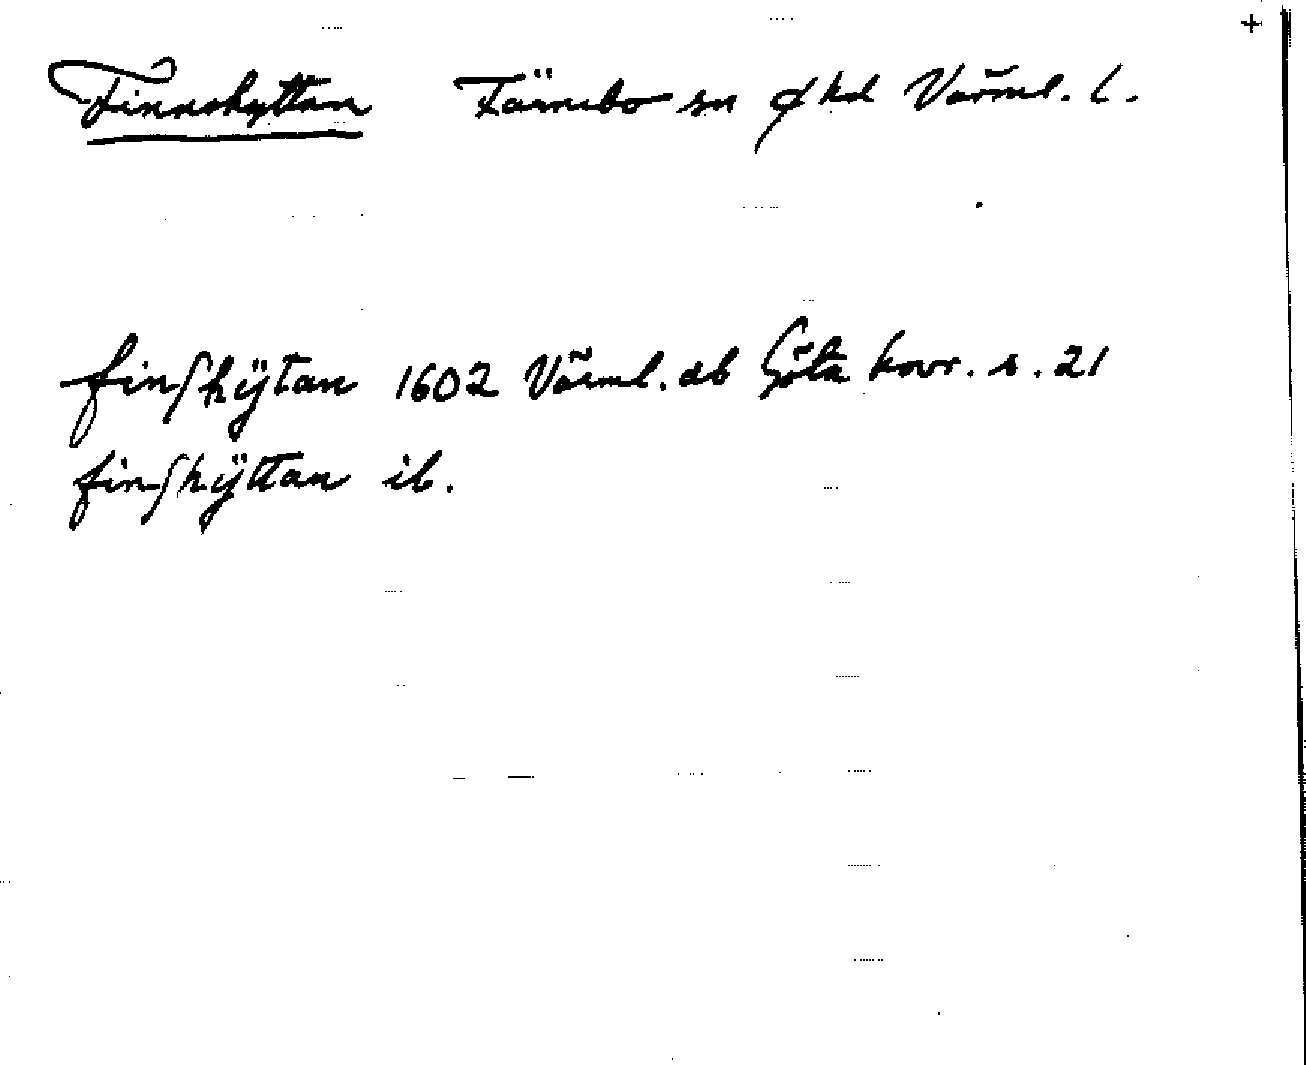 +
Finnshyttan Färnebo sn o hd Värml. l.
finshÿtan 1602 Värml. db Göta hovr. s. 21
finshÿttan ib.